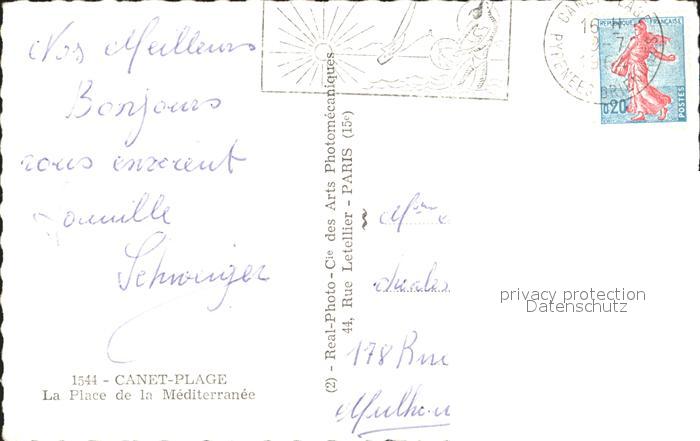 Nos Meilleurs
Bonjours
vous envoient
famille
Schweizer
1544 - CANET-PLAGE
La Place de la Méditerranée
(2) - Real-Photo - Cie des Arts Photomécaniques
44, Rue Letellier - PARIS (15e)
CANET-PLAGE
16 H
9-7
PYRENEES ORIENTALES
REPUBLIQUE FRANÇAISE
0,20
POSTES
178 Rue
privacy protection
Datenschutz